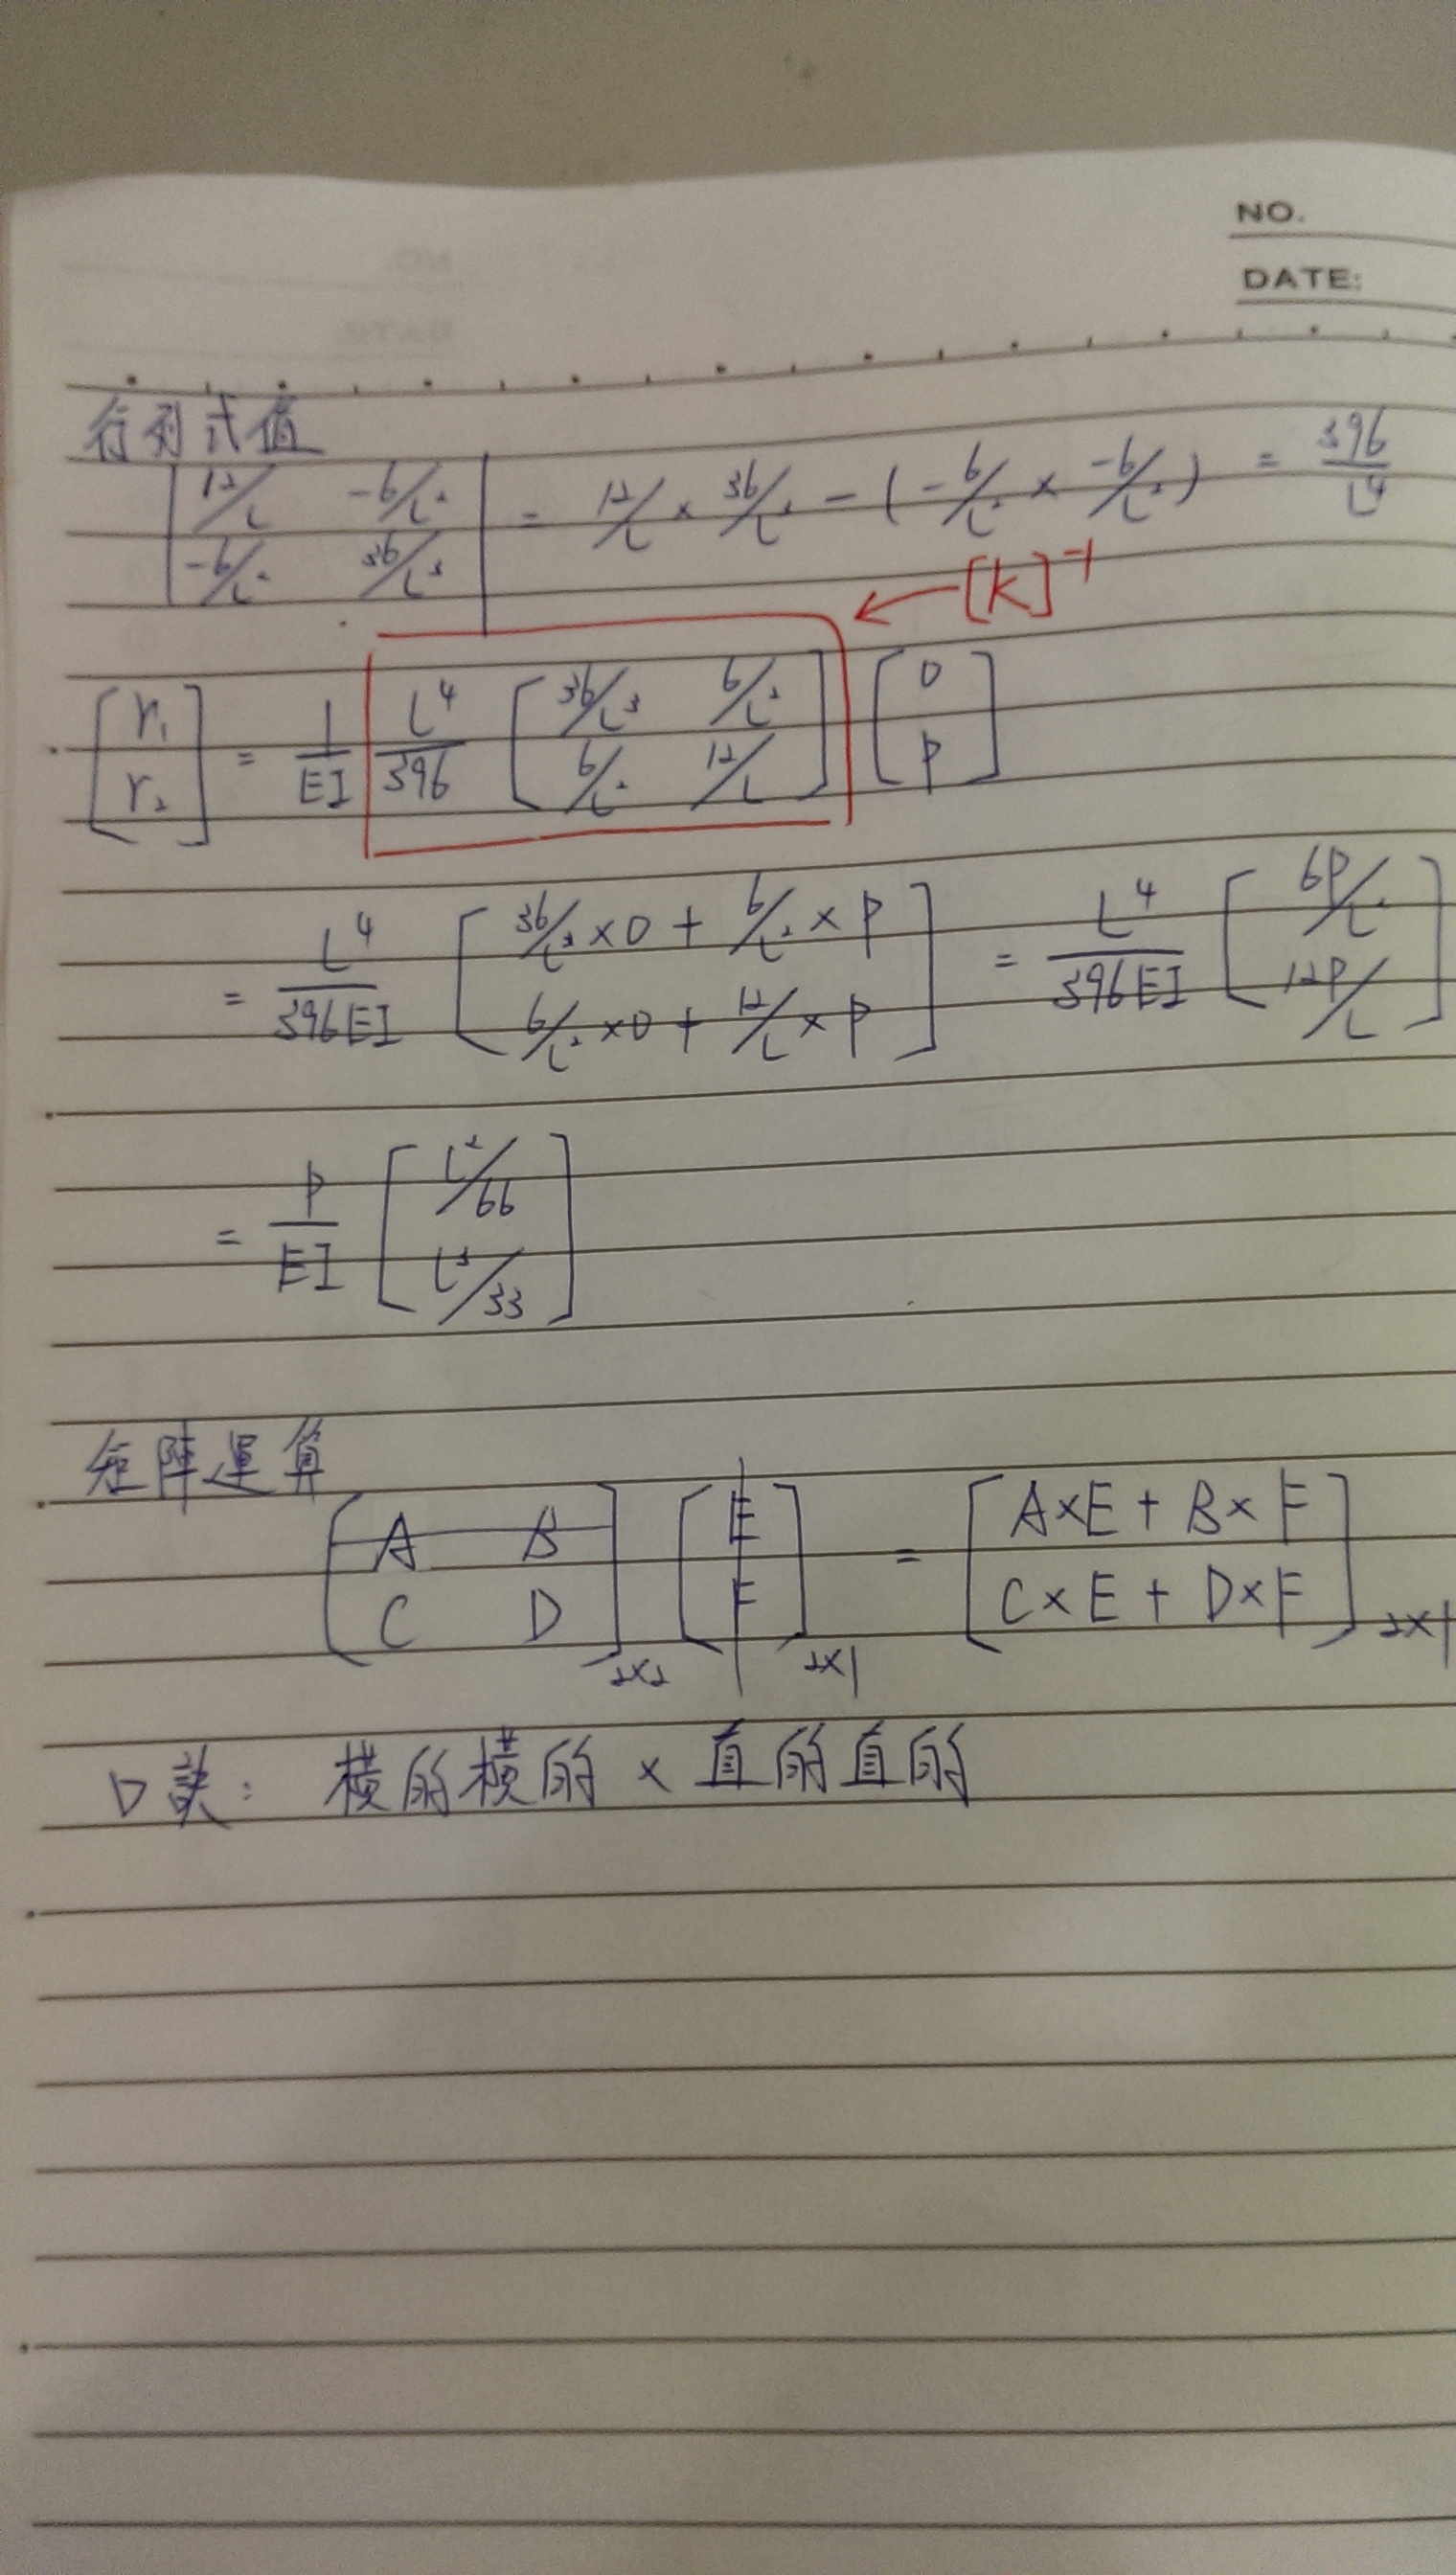 NO.
DATE:
行列式值
| 12/L -6/L² | = 12/L × 36/L³ - (-6/L² × -6/L²) = 396/L⁴
| -6/L² 36/L³ |
[K]⁻¹
[r₁ r₂] = 1/EI L⁴/396 [36/L³ 6/L² 6/L² 12/L] [0 P]
= L⁴/396EI [36/L³×0 + 6/L²×P 6/L²×0 + 12/L×P] = L⁴/396EI [6P/L² 12P/L]
= P/EI [L²/66 L³/33]
矩陣運算
[A B C D]2×2 [E F]2×1 = [A×E + B×F C×E + D×F]2×1
口訣: 橫的橫的 × 直的直的